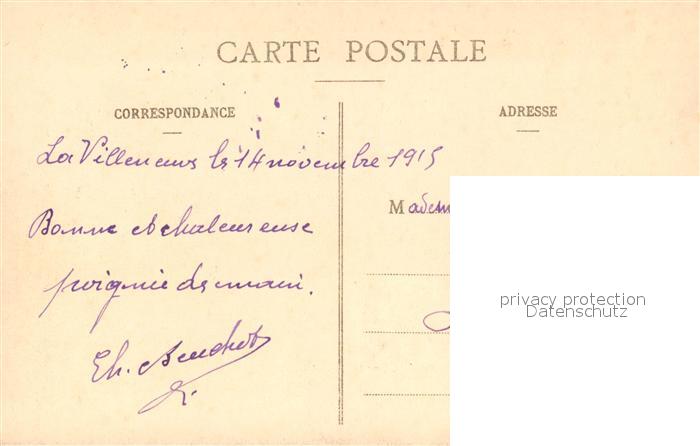 CARTE POSTALE
CORRESPONDANCE
ADRESSE
La Villeneuve le 14 novembre 1915
Madem
Bonne et chaleureuse
poignée de main.
privacy protection
Datenschutz
Th.